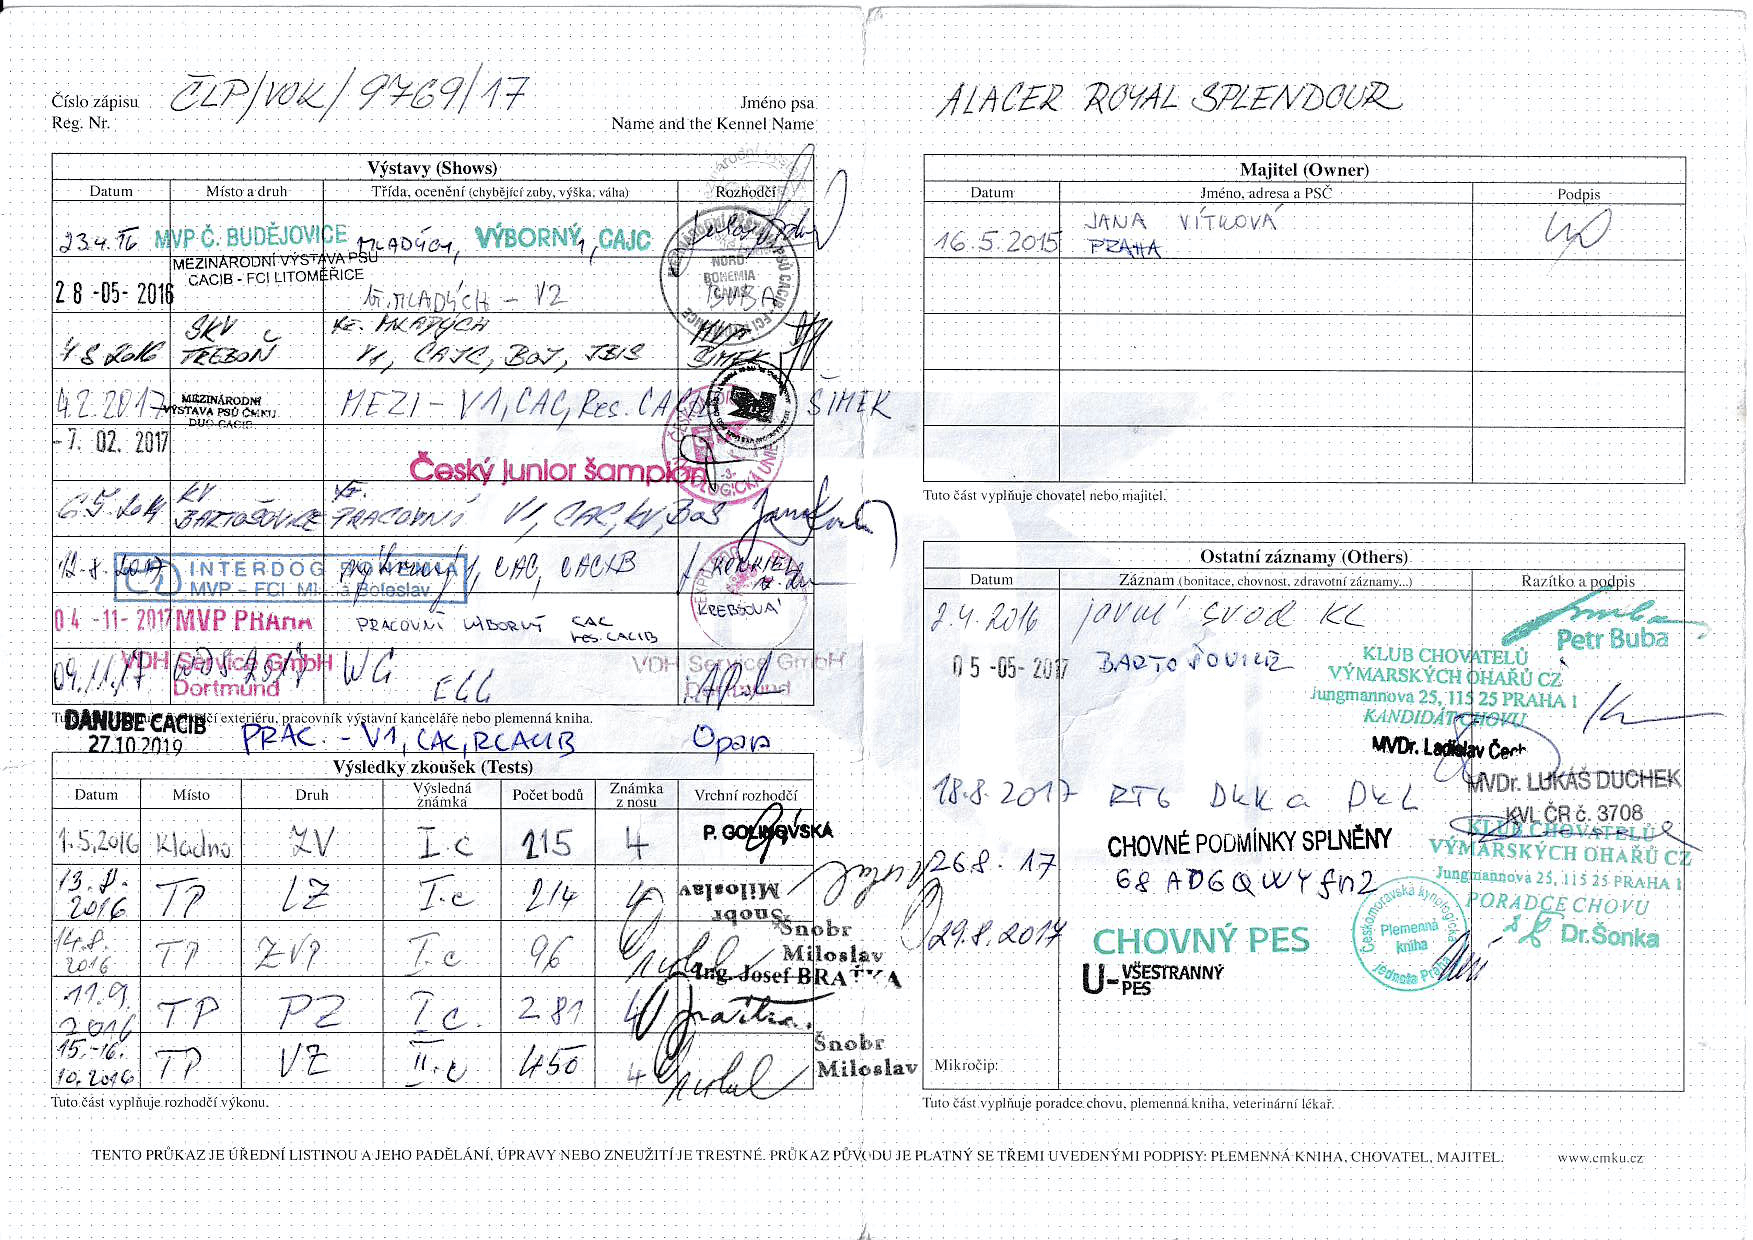 Číslo zápisu
Reg. Nr.
ČLP/VOK/9769/17
Jméno psa
Name and the Kennel Name
ALACER ROYAL SPLENDOUR
Výstavy (Shows)
Datum Místo a druh Třída, ocenění (chybějící zuby, výška, váha) Rozhodčí
23.4. MVP Č. BUDĚJOVICE MLADÝCH, VÝBORNÝ 1, CAJC
MEZINÁRODNÍ VÝSTAVA PSŮ
CACIB - FCI LITOMĚŘICE
28 -05- 2016 tř. MLADÝCH - V2 BUBA
NORD
BOHEMIA
CANIS
SKV TŘEBOŇ
8 2016 V1, CAJC, BOJ, JBIS ŠIMEK
4.2.2017 MEZINÁRODNÍ
VÝSTAVA PSŮ ČMKU
DUO CACIB
MEZI - V1, CAC, Res. CAC ŠIMEK
-7. 02. 2017
Český junior šampion
KV
BARTOŠOVICE PRACOVNÍ V1, CAC, KV, BOS
12.8.2017 INTERDOG BOHEMIA
MVP - FCI Boleslav
výborný 1, CAC, CACIB
04 -11- 2017 MVP PRAHA PRACOVNÍ VÝBORNÝ CAC
res. CACIB
KREBSOVÁ
09.11.17 VDH Service GmbH
Dortmund
VDH Service GmbH
Dortmund
exteriéru, pracovník výstavní kanceláře nebo plemenná kniha.
DANUBE CACIB
27.10.2019
PRAC. - V1, CAC, RCACIB
Výsledky zkoušek (Tests)
Datum Místo Druh Výsledná
známka Počet bodů Známka
z nosu Vrchní rozhodčí
1.5.2016 Kladno ZV I.c 215 4 P. GOLINOVSKA
13.8.
2016 TP LZ I.c 214 4 Šnobr
Miloslav
14.8.
2016 TP ZVP I.c 96 Šnobr
Miloslav
11.9.
2016 TP PZ I c. 281 4 Ing. Josef BRAŤKA
15.-16.
10.2016 TP VZ II.c 450 4 Šnobr
Miloslav
Tuto část vyplňuje rozhodčí výkonu.
Majitel (Owner)
Datum Jméno, adresa a PSČ Podpis
16.5.2015 JANA VÍTKOVÁ
PRAHA
Tuto část vyplňuje chovatel nebo majitel.
Ostatní záznamy (Others)
Datum Záznam (bonitace, chovnost, zdravotní záznamy...) Razítko a podpis
2.4.2016 jarní svod KL
Petr Buba
05 -05- 2017 BARTOŠOVICE
KLUB CHOVATELŮ
VÝMARSKÝCH OHAŘŮ CZ
Jungmannova 25, 115 25 PRAHA 1
KANDIDÁT CHOVU
MVDr. Ladislav Čech
18.8.2017 RTG DKK a DKL
MVDr. LUKÁŠ DUCHEK
KVL ČR č. 3708
26.8.17 CHOVNÉ PODMÍNKY SPLNĚNY
KLUB CHOVATELŮ
VÝMARSKÝCH OHAŘŮ CZ
Jungmannova 25, 115 25 PRAHA 1
PORADCE CHOVU
Dr. Šonka
29.8.2017 CHOVNÝ PES
U-VŠESTRANNÝ
PES
Českomoravská kynologická
Plemenná
kniha
jednota Praha
Mikročip:
Tuto část vyplňuje poradce chovu, plemenná kniha, veterinární lékař.
TENTO PRŮKAZ JE ÚŘEDNÍ LISTINOU A JEHO PADĚLÁNÍ, ÚPRAVY NEBO ZNEUŽITÍ JE TRESTNÉ. PRŮKAZ PŮVODU JE PLATNÝ SE TŘEMI UVEDENÝMI PODPISY: PLEMENNÁ KNIHA, CHOVATEL, MAJITEL.
www.cmku.cz